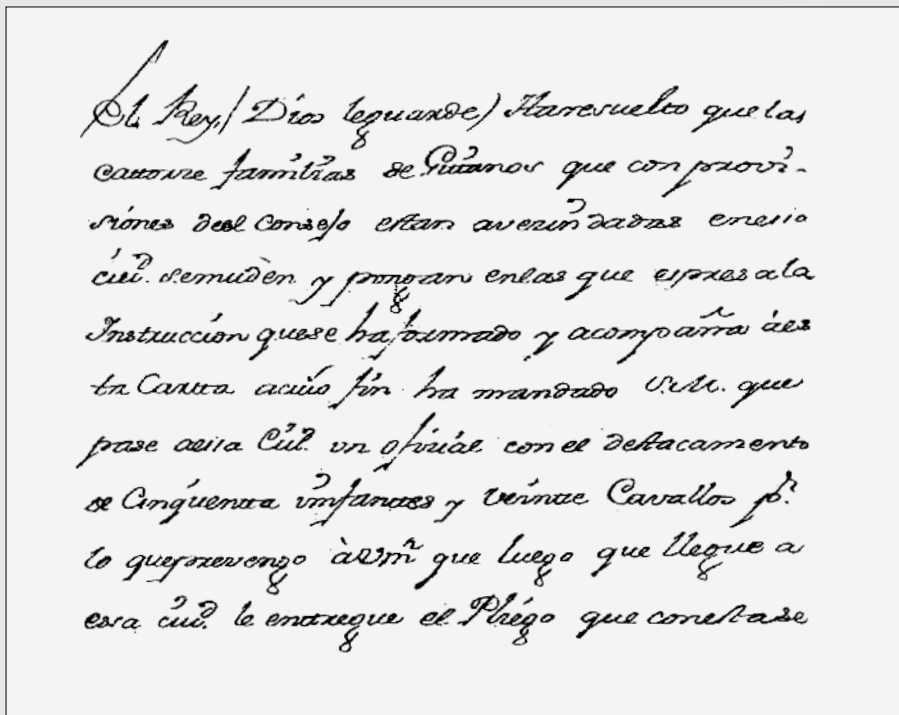 El Rey (Dios leguarde) Haresuelto que las
catorze familias de Gitanos que con provi-
siones deel Consejo estan avezindadas enesta
ciud. semuden y pongan enlas que expresa la
Instruccion quese ha formado y acompaña aes
ta Carta acuio fin ha mandado S.M. que
pase aessa Ciud. un ofizial con el destacamento
de Cinquenta ynfantes y veinte Cavallos pr.
lo queprevengo à Vm que luego que llegue a
essa ciud. le entregue el Pliego que conestase